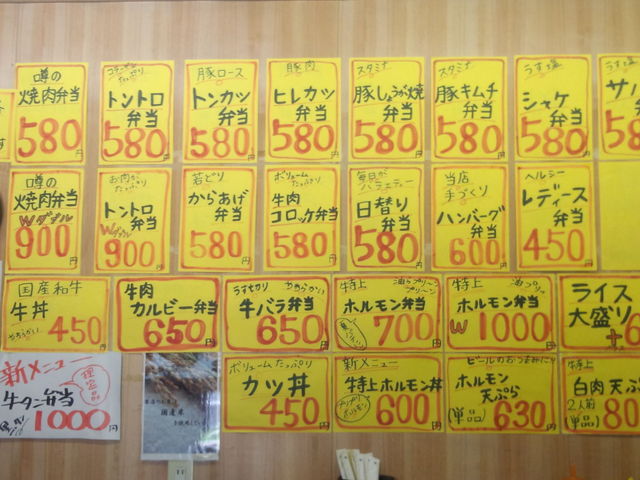 噂の
焼肉弁当
580円
コラーゲン
たっぷり
トントロ
弁当
580円
豚ロース
トンカツ
弁当
580円
豚肉
ヒレカツ
弁当
580円
スタミナ
豚しょうが焼
弁当
580円
スタミナ
豚キムチ
弁当
580円
うす塩
シャケ
弁当
580円
うす塩
サバ
噂の
焼肉弁当
Wダブル
900円
お肉が
たっぷり
トントロ
弁当
Wダブル
900円
若どり
からあげ
弁当
580円
ボリューム
たっぷり
牛肉
コロッケ弁当
580円
毎日が
バラエティー
日替り
弁当
580円
当店
手づくり
ハンバーグ
弁当
600円
ヘルシー
レディース
弁当
450円
国産和牛
牛丼
やわらかい
450円
牛肉
カルビー弁当
650円
うす切り やわらかい
牛バラ弁当
650円
特上
ホルモン弁当
700円
特上
ホルモン弁当
W1000円
ライス
大盛り
新メニュー
牛タン弁当
1000円
国産米
ボリュームたっぷり
カツ丼
450円
新メニュー
特上ホルモン丼
プリプリ
ホルモン
600円
ビールのおつまみに
ホルモン
天ぷら
(単品)
630円
特上
白肉天ぷ
2人前
(単品)
80